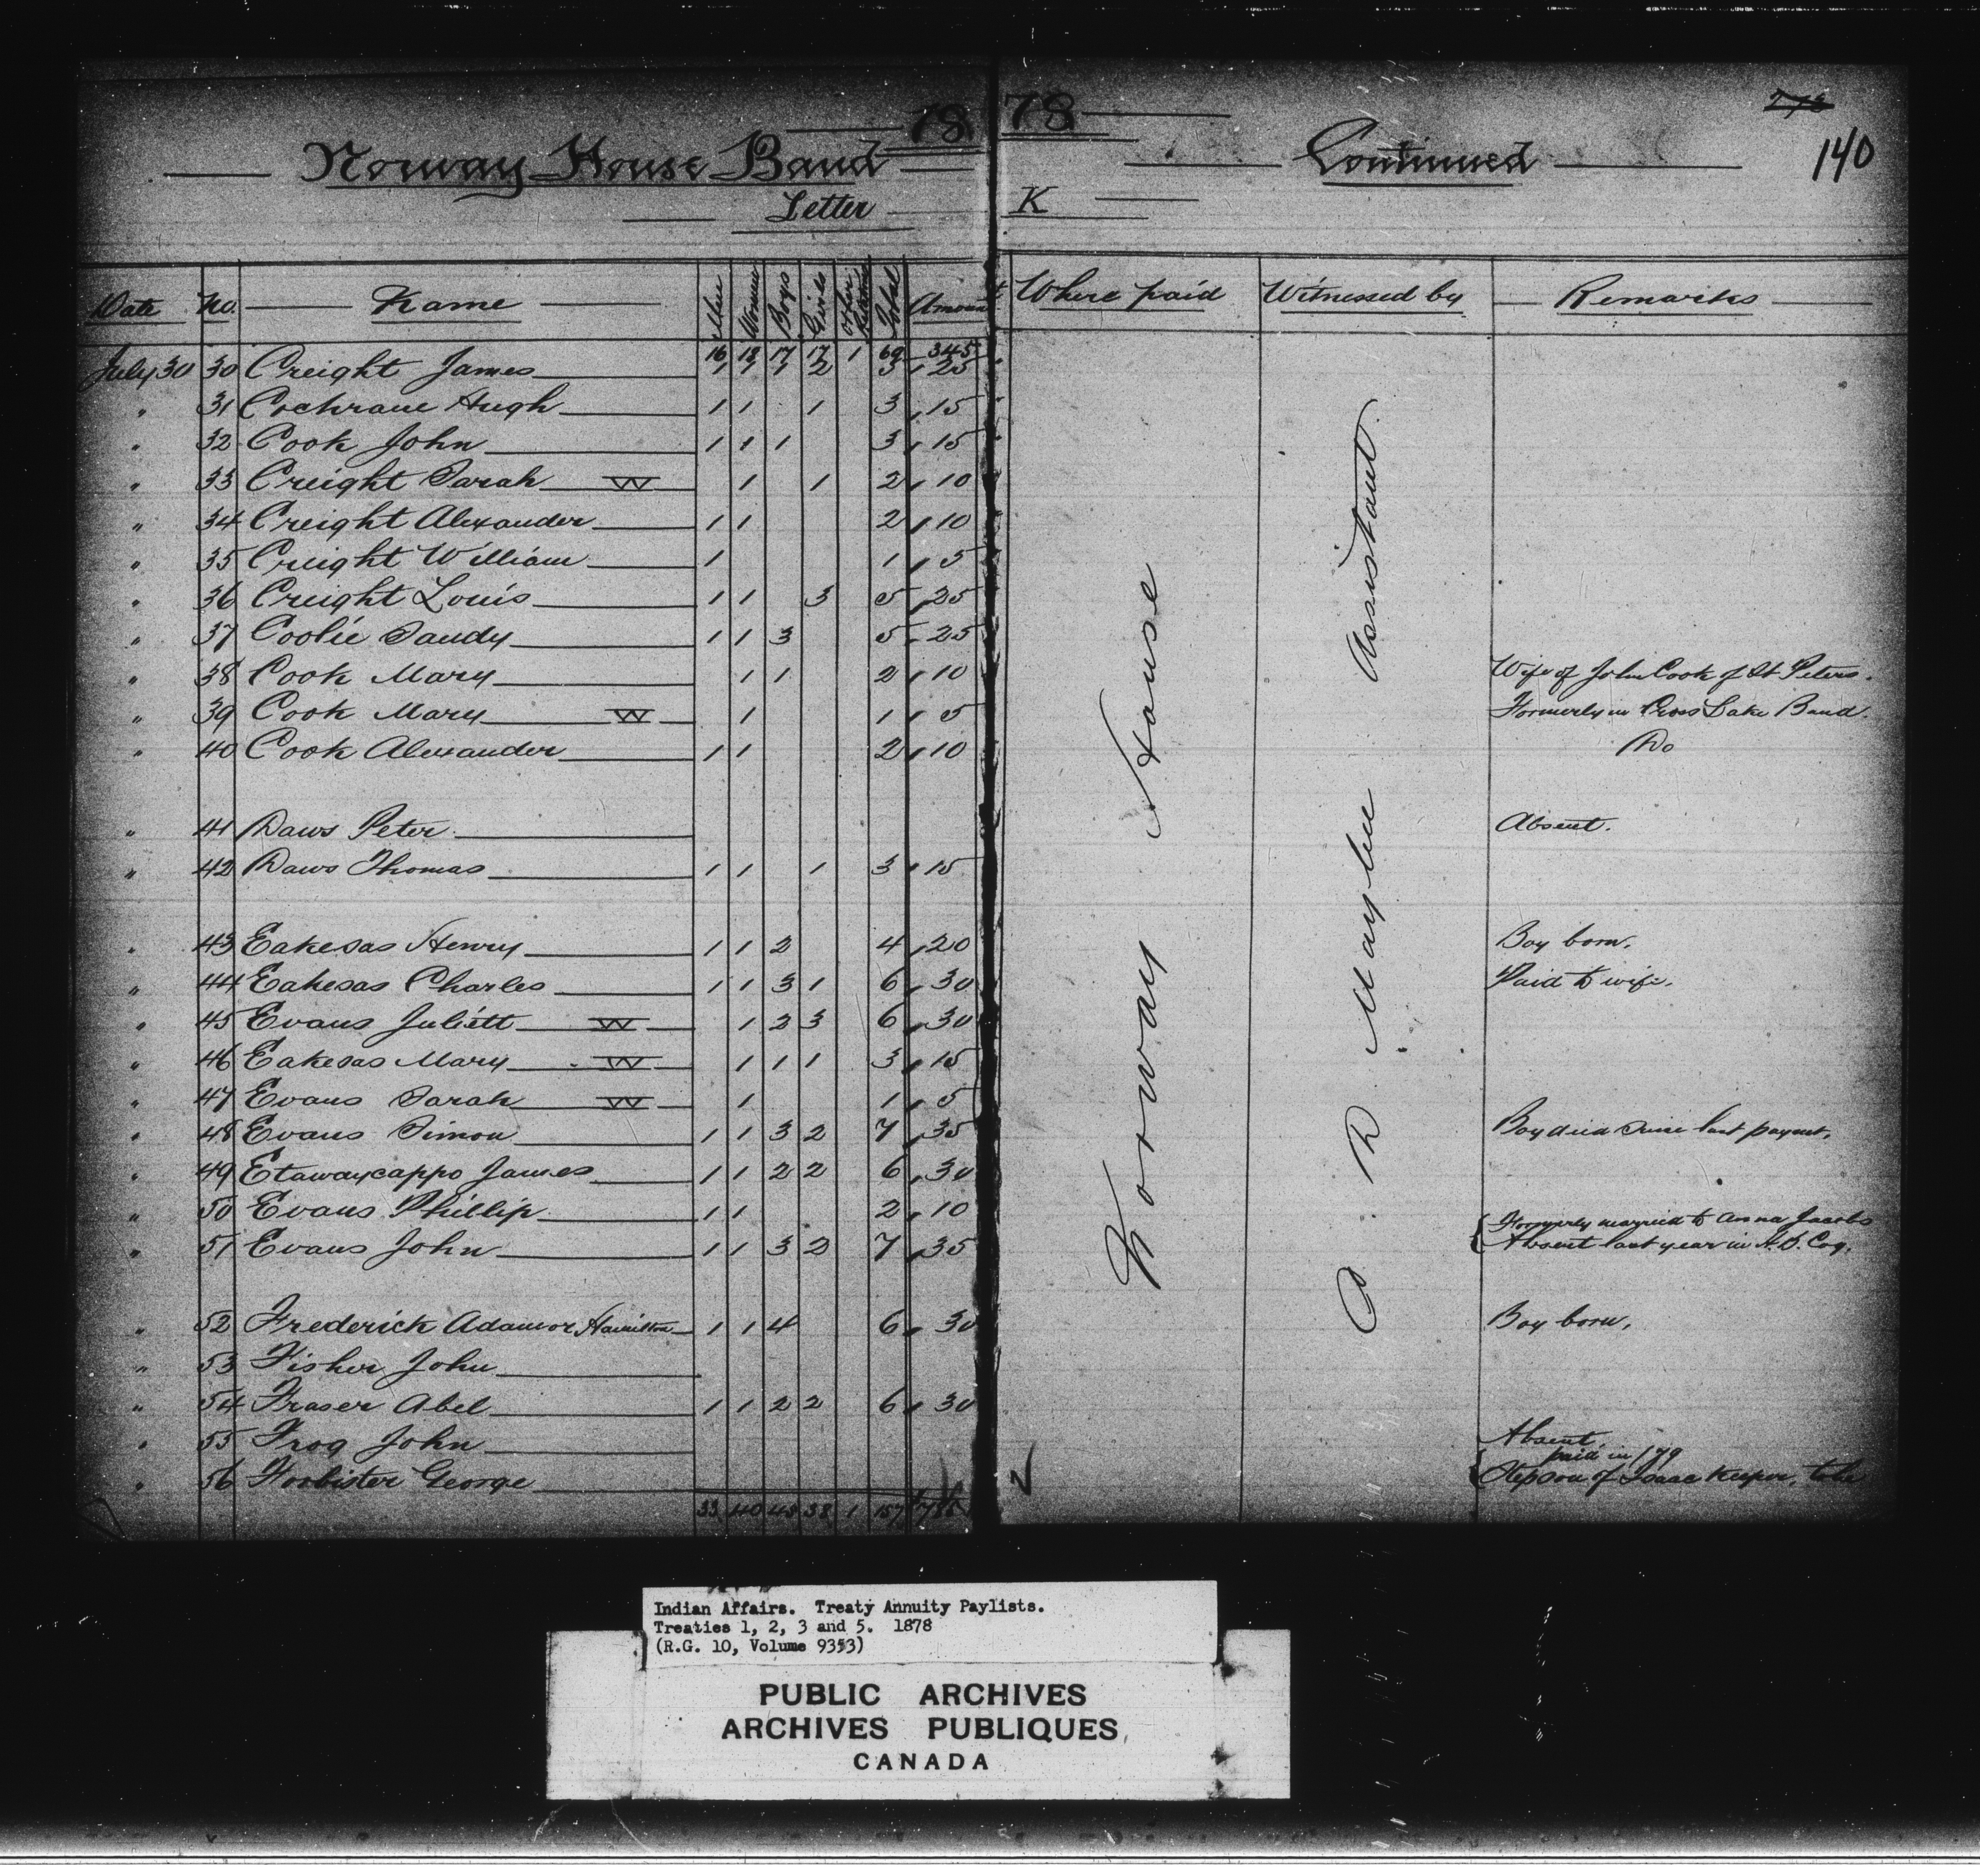 18 78
Norway House Band Continued 140
Letter K
Date No. Name Men Women Boys Girls Other Total Amount Where paid Witnessed by Remarks
16 18 17 17 1 69 345
July 30 30 Creight James 1 1 1 2 5 25
" 31 Cochrane Hugh 1 1 1 3 15
" 32 Cook John 1 1 1 3 15
" 33 Creight Sarah W 1 1 2 10
" 34 Creight Alexander 1 1 2 10
" 35 Creight William 1 1 5
" 36 Creight Louis 1 1 3 5 25
" 37 Coolie Sandy 1 1 3 5 25
" 38 Cook Mary 1 1 2 10 Wife of John Cook of St Peters.
" 39 Cook Mary W 1 1 5 Formerly in Cross Lake Band.
" 40 Cook Alexander 1 1 2 10 Do
" 41 Daws Peter Absent.
" 42 Daws Thomas 1 1 1 3 15
" 43 Eakesas Henry 1 1 2 4 20 Boy born.
" 44 Eakesas Charles 1 1 3 1 6 30 Paid to wife.
" 45 Evans Juliett W 1 2 3 6 30
" 46 Eakesas Mary W 1 1 1 3 15
" 47 Evans Sarah W 1 1 5
" 48 Evans Simon 1 1 3 2 7 35 Boy died since last paymt.
" 49 Etawaycappo James 1 1 2 2 6 30
" 50 Evans Phillip 1 1 2 10 Formerly married to Anna Jacobs
" 51 Evans John 1 1 3 2 7 35 Absent last year in H. B. Coy.
" 52 Frederick Adam or Hamilton 1 1 4 6 30 Boy born.
" 53 Fisher John
" 54 Fraser Abel 1 1 2 2 6 30
" 55 Frog John Absent
paid in /79
" 56 Forbister George Stepson of Isaac Keeper, to be
33 40 45 38 1 157 $785
Norway House
Assistant
Indian Affairs. Treaty Annuity Paylists.
Treaties 1, 2, 3 and 5. 1878
(R.G. 10, Volume 9353)
PUBLIC ARCHIVES
ARCHIVES PUBLIQUES
CANADA